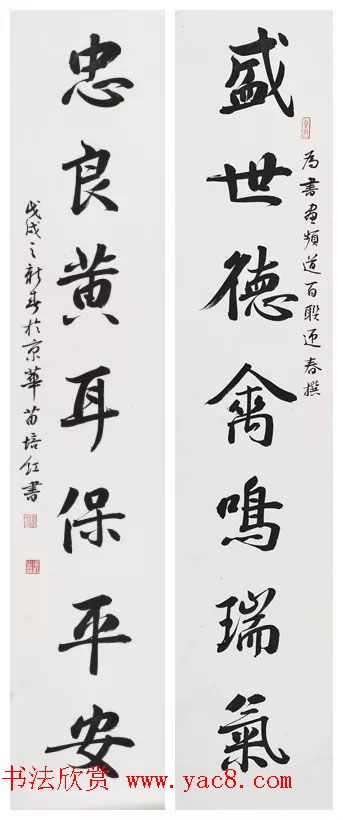 盛世德禽鳴瑞氣
為書畫頻道百聯迎春撰
忠良黄耳保平安
戊戌之新春於京華苗培红書
书法欣赏 www.yac8.com